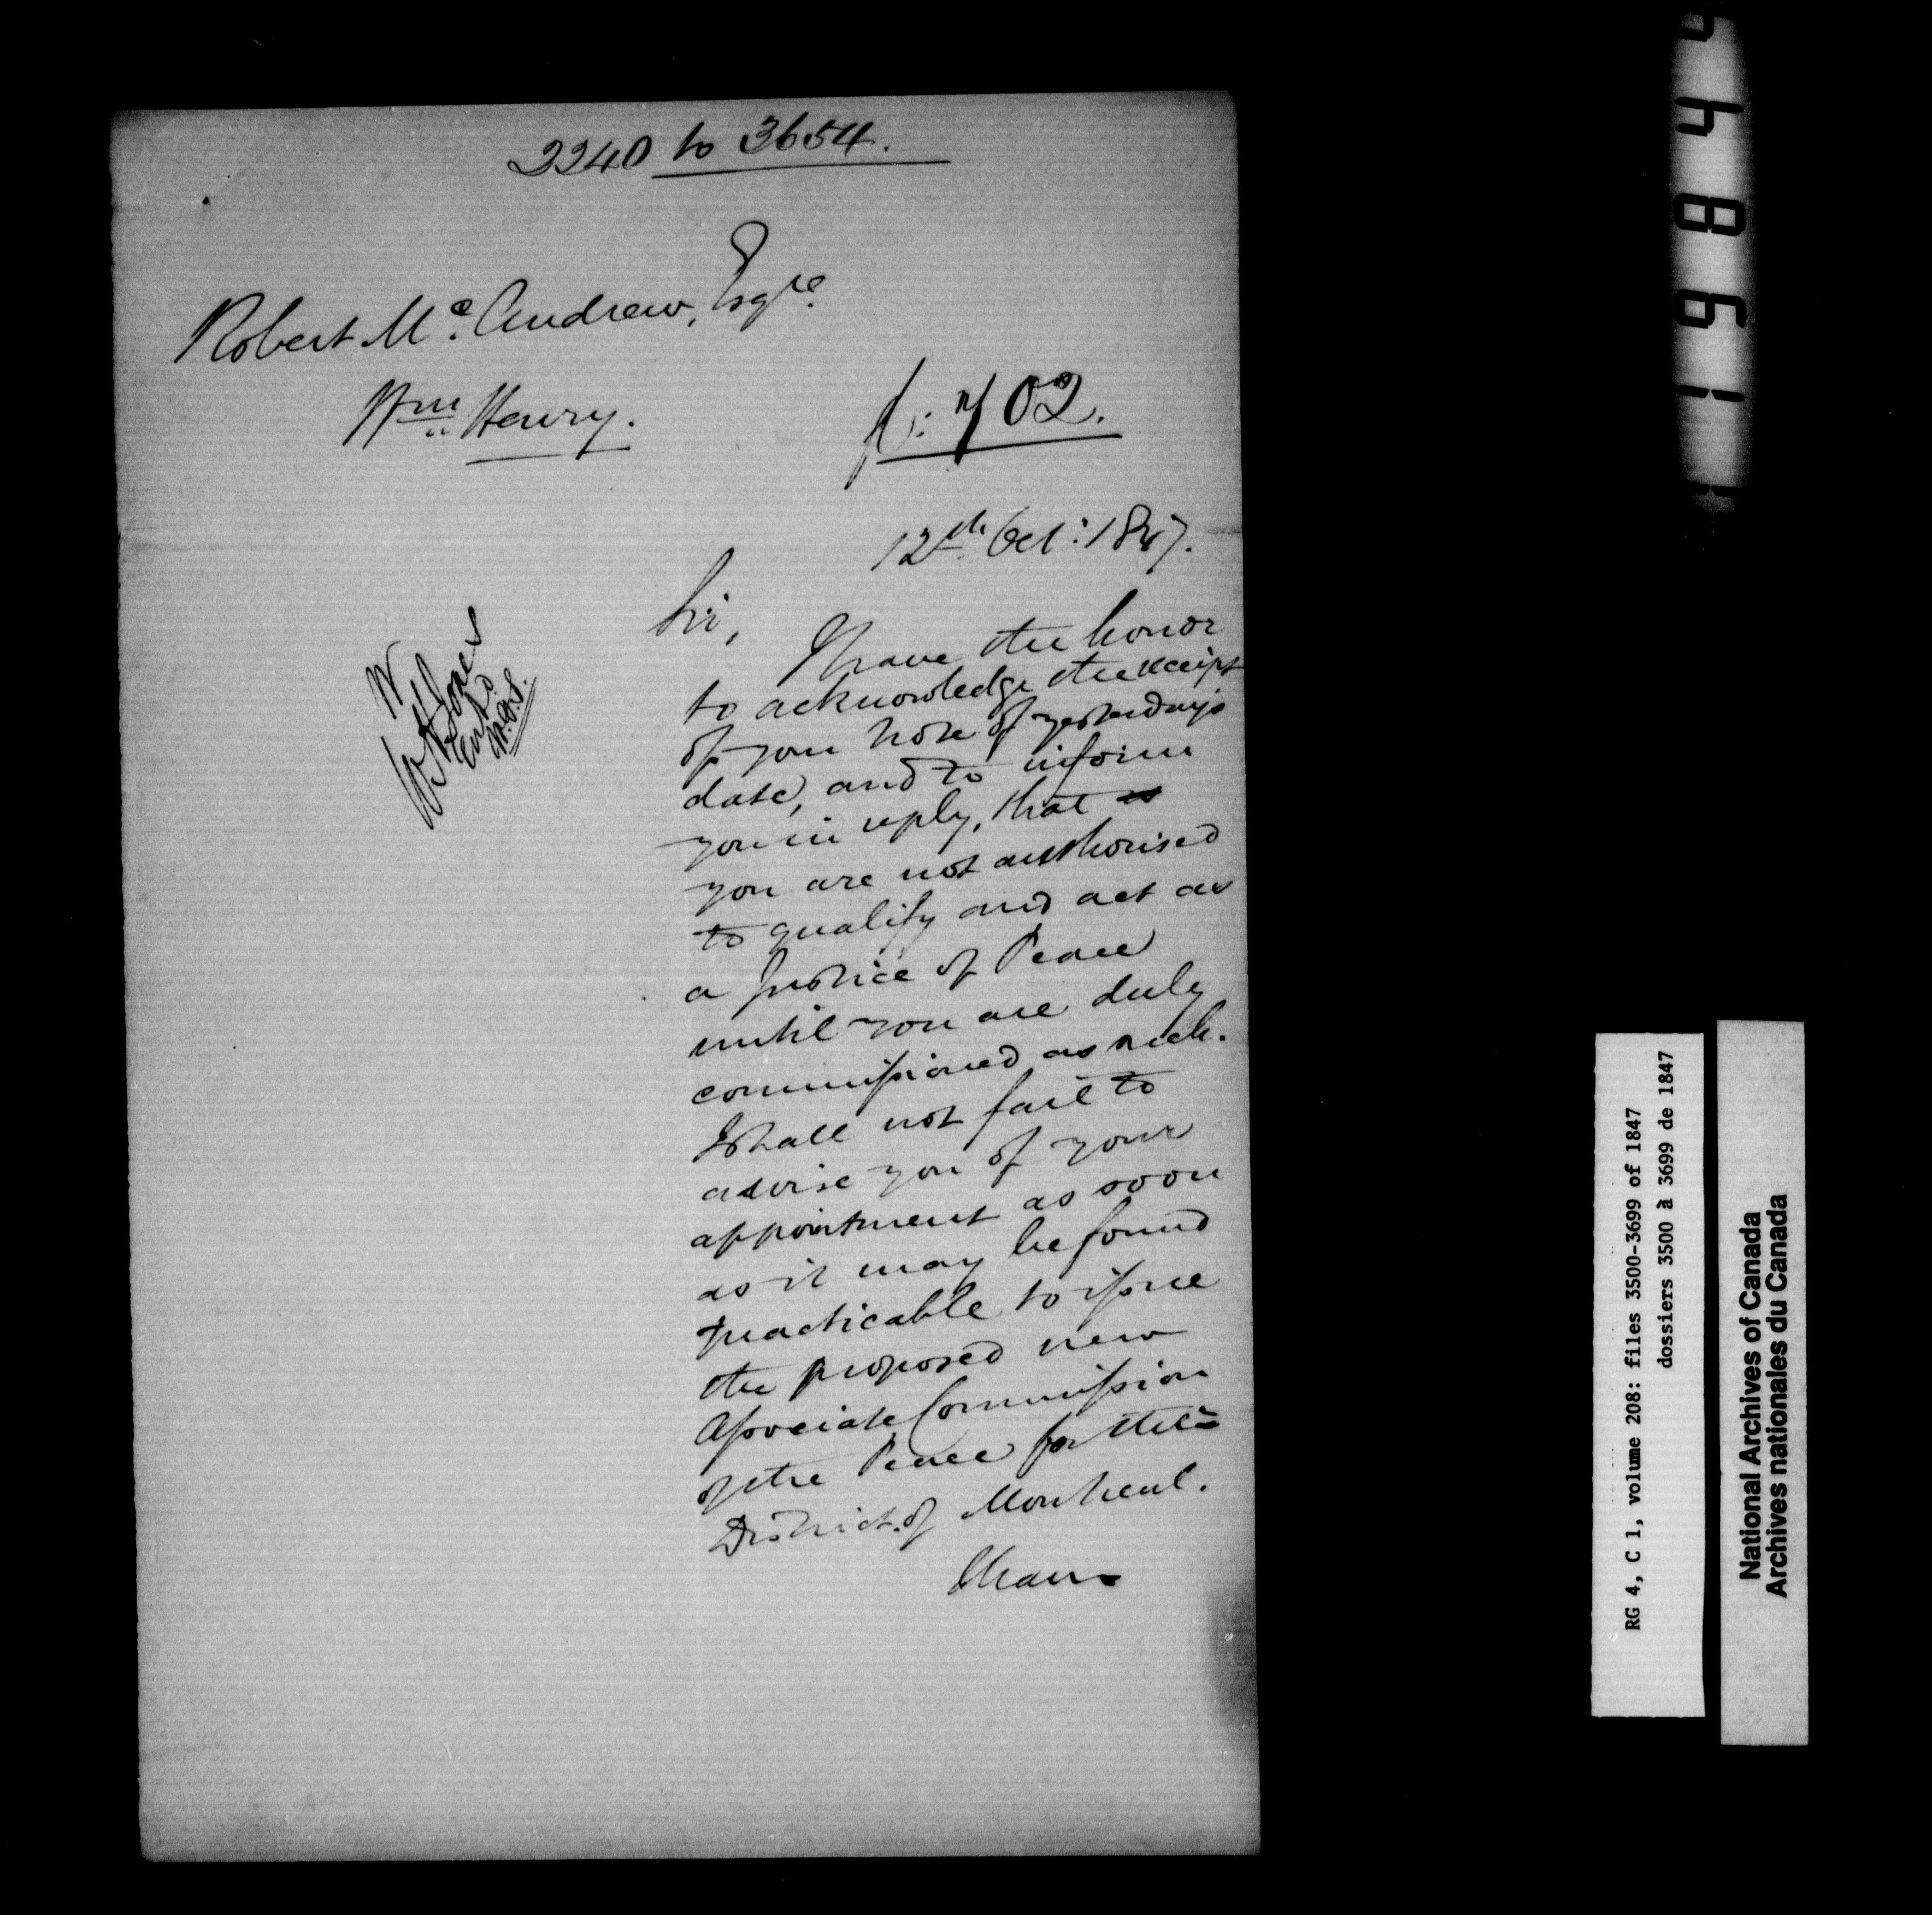 2240 to 3654.
Robert Mc. Andrew, Esqre.
Wm Henry.
f: 702.
12th Oct: 1847.
Sir,
I have the honor
to acknowledge the receipt
of your note of yesterday's
date, and to inform
you in reply, that
you are not authorised
to qualify and act as
a Justice of Peace
until you are duly
commissioned as such.
I shall not fail to
advise you of your
appointment as soon
as it may be found
practicable to issue
the proposed new
Associate Commission
of the Peace for the
District of Montreal.
I have
W
Jones
Entd
19684
RG 4, C 1, volume 208: files 3500-3699 of 1847
dossiers 3500 à 3699 de 1847
National Archives of Canada
Archives nationales du Canada